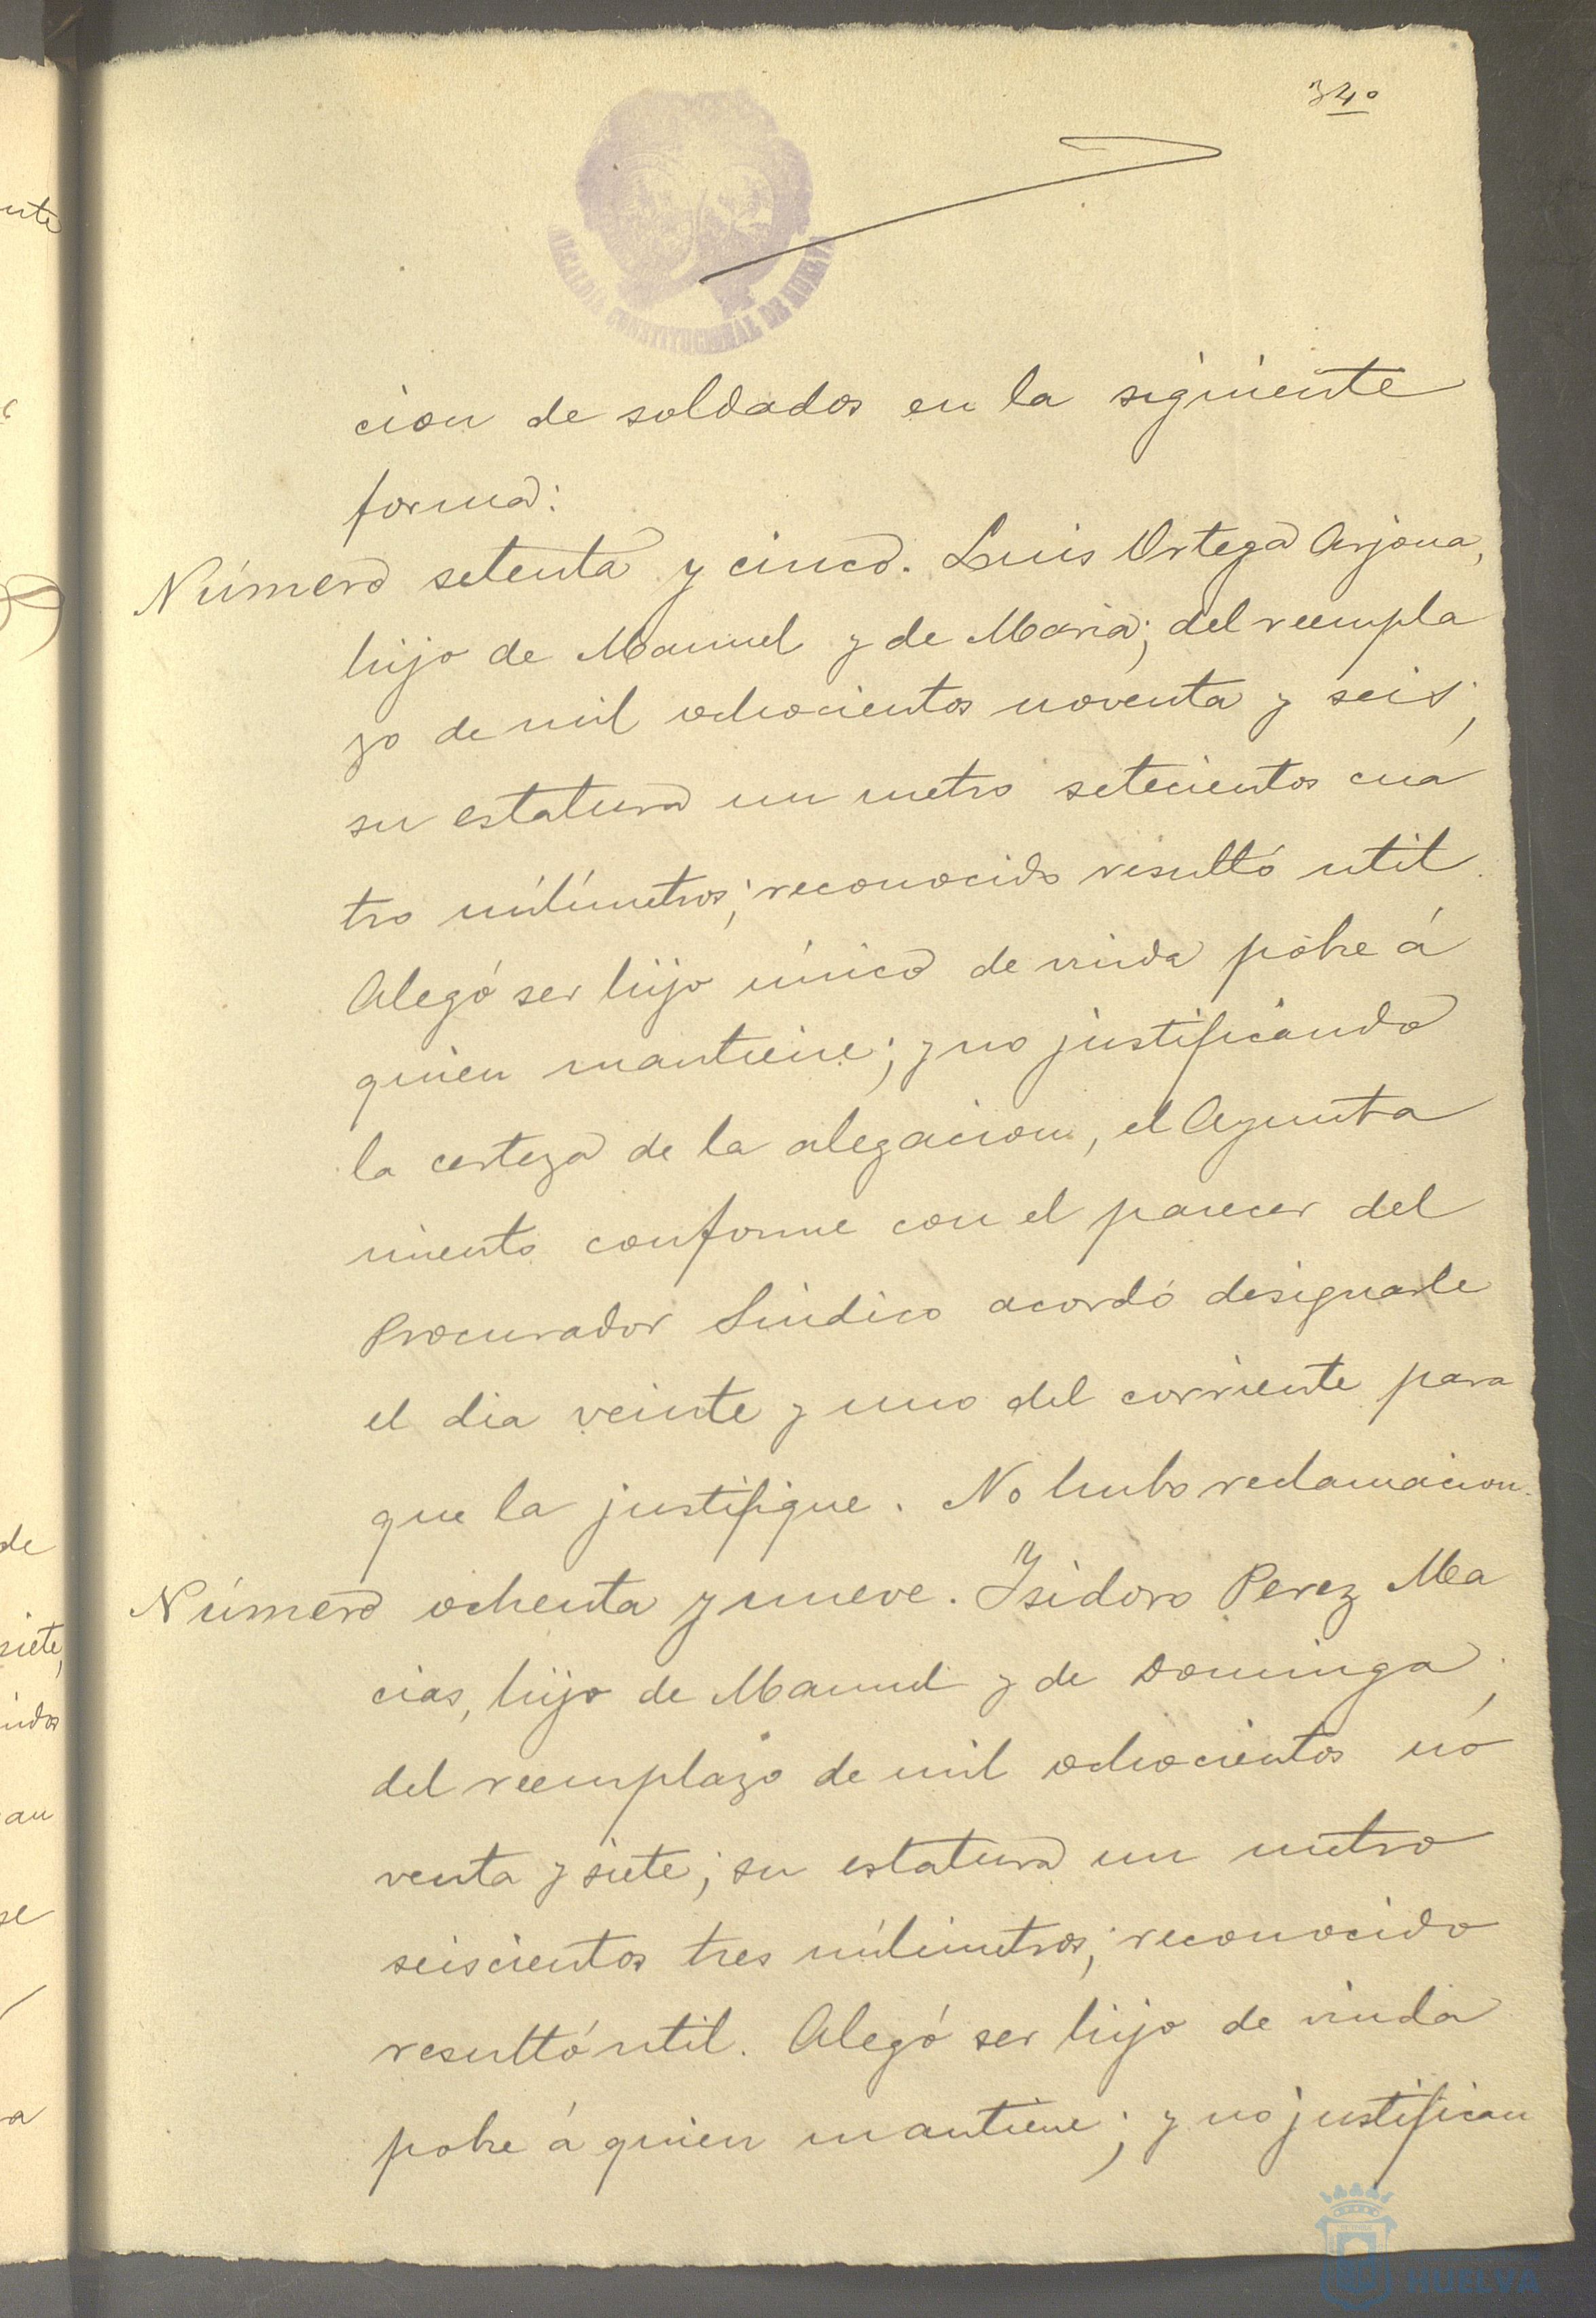 340
ALCALDIA CONSTITUCIONAL DE HUELVA
cion de soldados en la siguiente
forma:
Número setenta y cinco. Luis Ortega Arjona,
hijo de Manuel y de Maria; del reempla
zo de mil ochocientos noventa y seis;
su estatura un metro setecientos cua
tro milímetros; reconocido resultó util.
Alegó ser hijo único de viuda pobre á
quien mantiene; y no justificando
la certeza de la alegacion, el Ayunta
miento conforme con el parecer del
Procurador Sindico acordó designarle
el dia veinte y uno del corriente para
que la justifique. No hubo reclamacion.
Número ochenta y nueve. Isidoro Perez Ma
cias, hijo de Manuel y de Dominga;
del reemplazo de mil ochocientos no
venta y siete; su estatura un metro
seiscientos tres milimetros; reconocido
resultó util. Alegó ser hijo de viuda
pobre á quien mantiene; y no justifican
nte
de
siete,
an
se
a
HUELVA